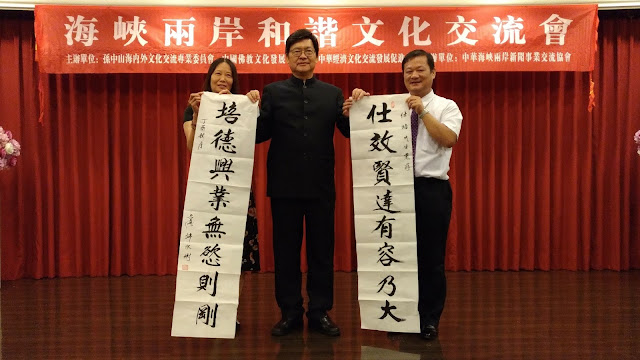 海峽兩岸和諧文化交流會
主辦單位：孫中山海內外文化交流專業委員會 佛教文化發展 中華經濟文化交流發展促進 辦單位：中華海峽兩岸新聞事業交流協會
仕效賢達有容乃大
培德興業無慾則剛